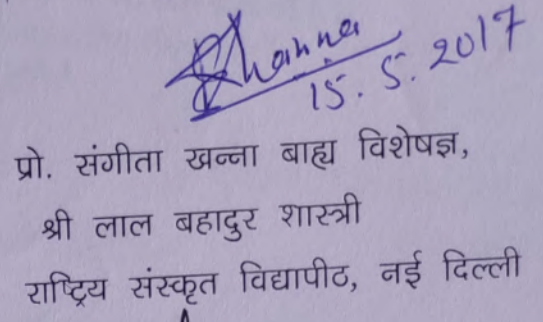 Khanna
15.5.2017
प्रो. संगीता खन्ना बाह्य विशेषज्ञ,
श्री लाल बहादुर शास्त्री
राष्ट्रिय संस्कृत विद्यापीठ, नई दिल्ली